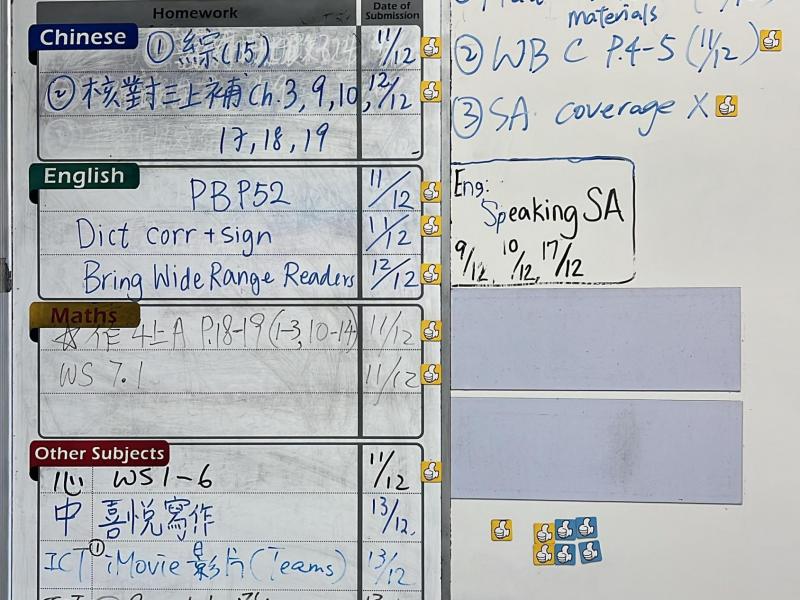 Homework Date of Submission
Chinese ① 綜(15) 11/12
② 核對三上補 Ch.3, 9, 10, 12/12
17, 18, 19
English PB P52 11/12
Dict corr + sign 11/12
Bring Wide Range Readers 12/12
Maths
☆ 作 4上A P.18-19 (1-3, 10-14) 11/12
WS 7.1 11/12
Other Subjects
心 WS 1-6 11/12
中 喜悅寫作 13/12
ICT ① iMovie 影片 (Teams) 13/12
materials
② WB C P.4-5 (11/12)
③ SA coverage X
Eng:
Speaking SA
9/12, 10/12, 17/12